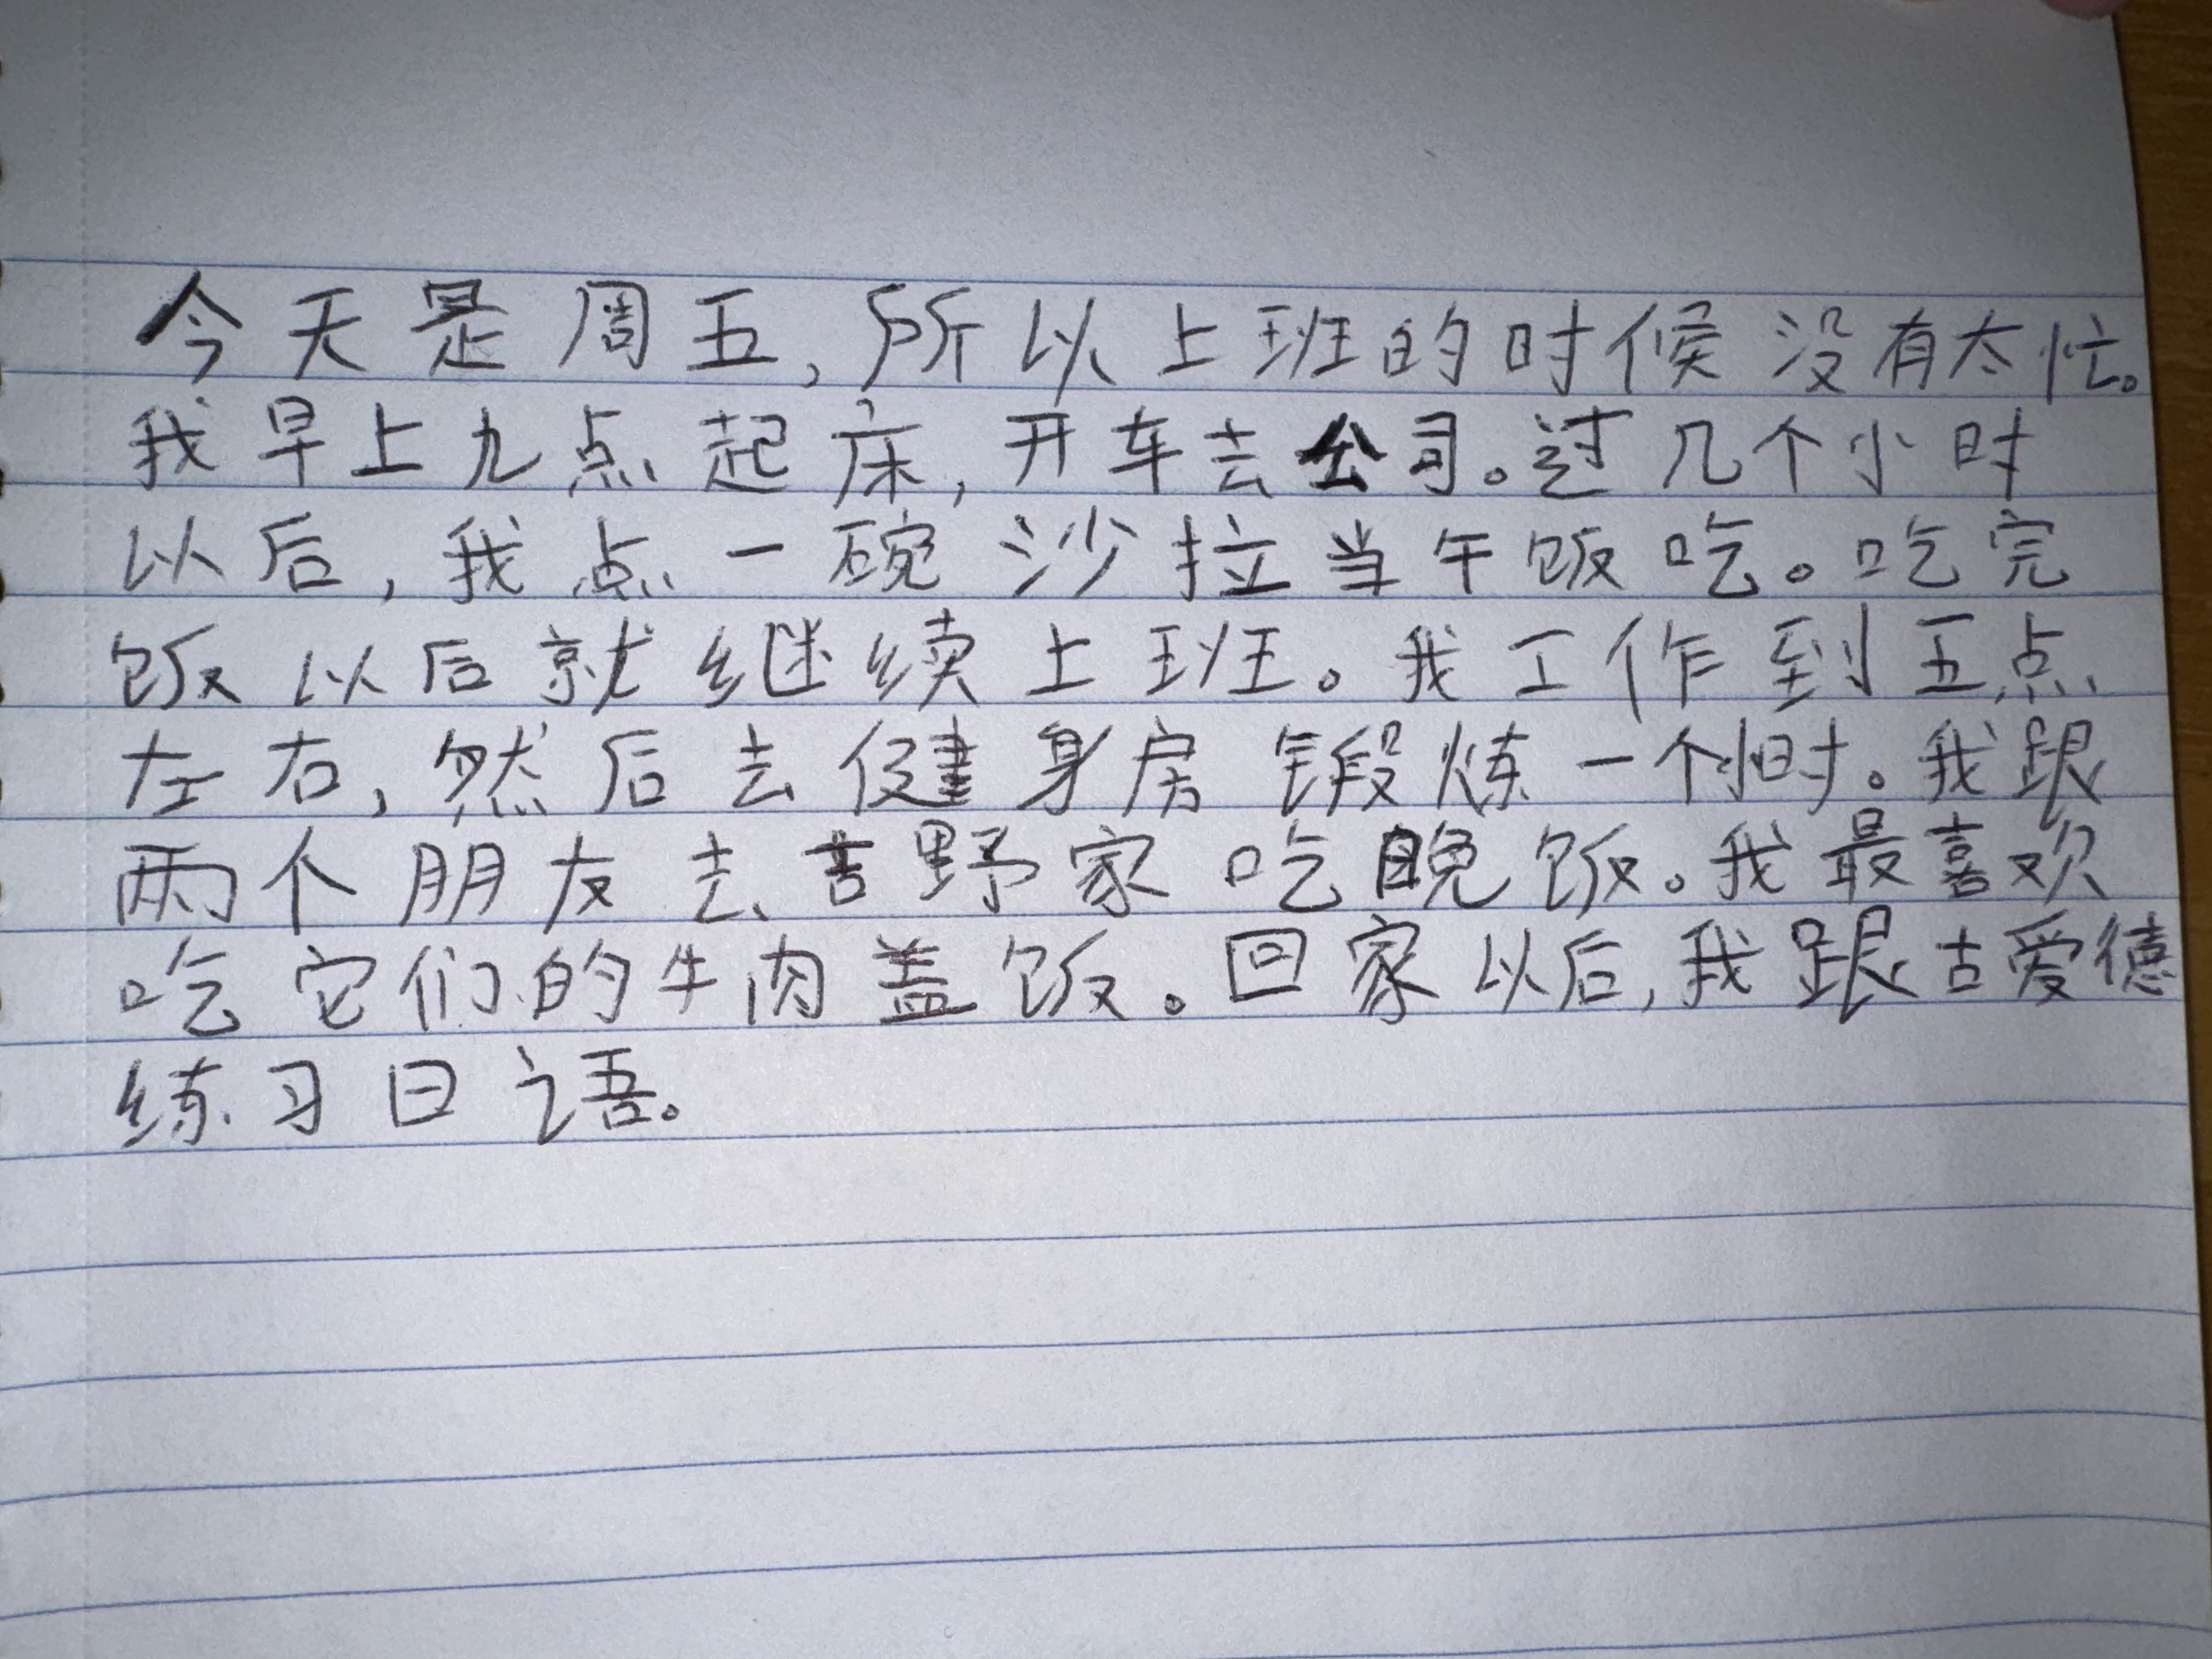 今天是周五,所以上班的时候没有太忙。
我早上九点起床,开车去公司。过几个小时
以后,我点一碗沙拉当午饭吃。吃完
饭以后就继续上班。我工作到五点
左右,然后去健身房锻炼一个小时。我跟
两个朋友去吉野家吃晚饭。我最喜欢
吃它们的牛肉盖饭。回家以后,我跟古爱德
练习日语。